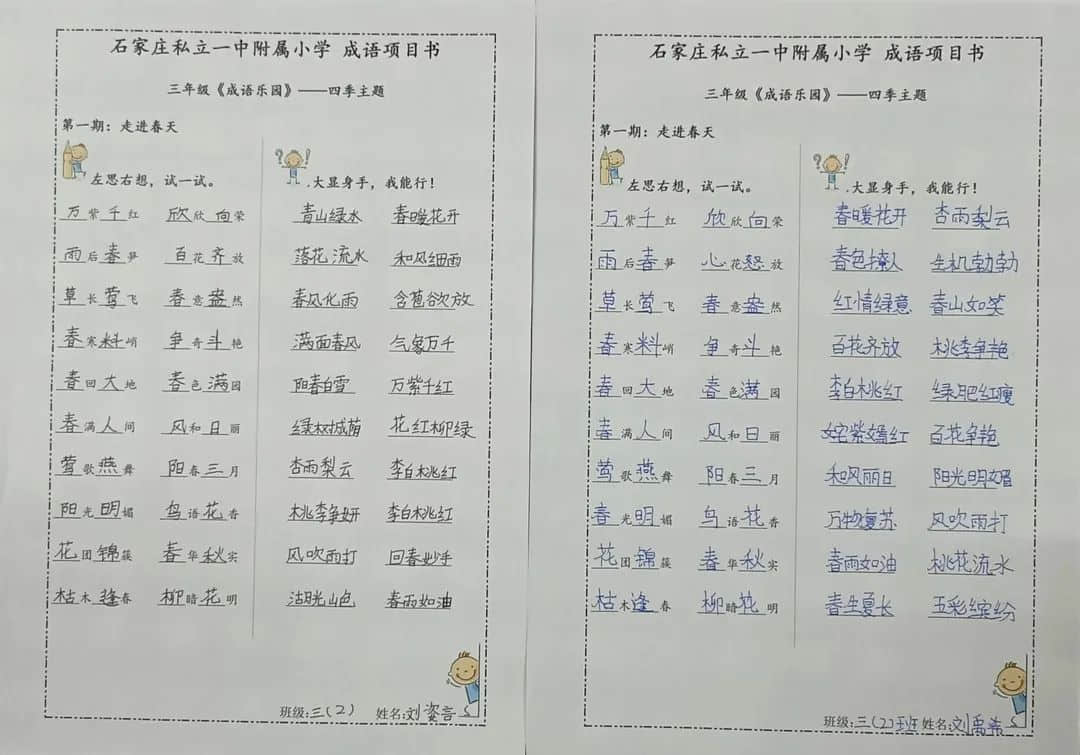 石家庄私立一中附属小学 成语项目书
三年级《成语乐园》——四季主题
第一期：走进春天
左思右想，试一试。 大显身手，我能行！
万紫千红 欣欣向荣 青山绿水 春暖花开
雨后春笋 百花齐放 落花流水 和风细雨
草长莺飞 春意盎然 春风化雨 含苞欲放
春寒料峭 争奇斗艳 满面春风 气象万千
春回大地 春色满园 阳春白雪 万紫千红
春满人间 风和日丽 绿树成荫 花红柳绿
莺歌燕舞 阳春三月 杏雨梨云 李白桃红
阳光明媚 鸟语花香 桃李争妍 李白桃红
花团锦簇 春华秋实 风吹雨打 回春妙手
枯木逢春 柳暗花明 湖光山色 春雨如油
班级：三(2) 姓名：刘
石家庄私立一中附属小学 成语项目书
三年级《成语乐园》——四季主题
第一期：走进春天
左思右想，试一试。 大显身手，我能行！
万紫千红 欣欣向荣 春暖花开 杏雨梨云
雨后春笋 心花怒放 春色撩人 生机勃勃
草长莺飞 春意盎然 红情绿意 春山如笑
春寒料峭 争奇斗艳 百花齐放 桃李争艳
春回大地 春色满园 李白桃红 绿肥红瘦
春满人间 风和日丽 姹紫嫣红 百花争艳
莺歌燕舞 阳春三月 和风丽日 阳光明媚
春光明媚 鸟语花香 万物复苏 风吹雨打
花团锦簇 春华秋实 春雨如油 桃花流水
枯木逢春 柳暗花明 春生夏长 五彩缤纷
班级：三(2)班 姓名：刘禹